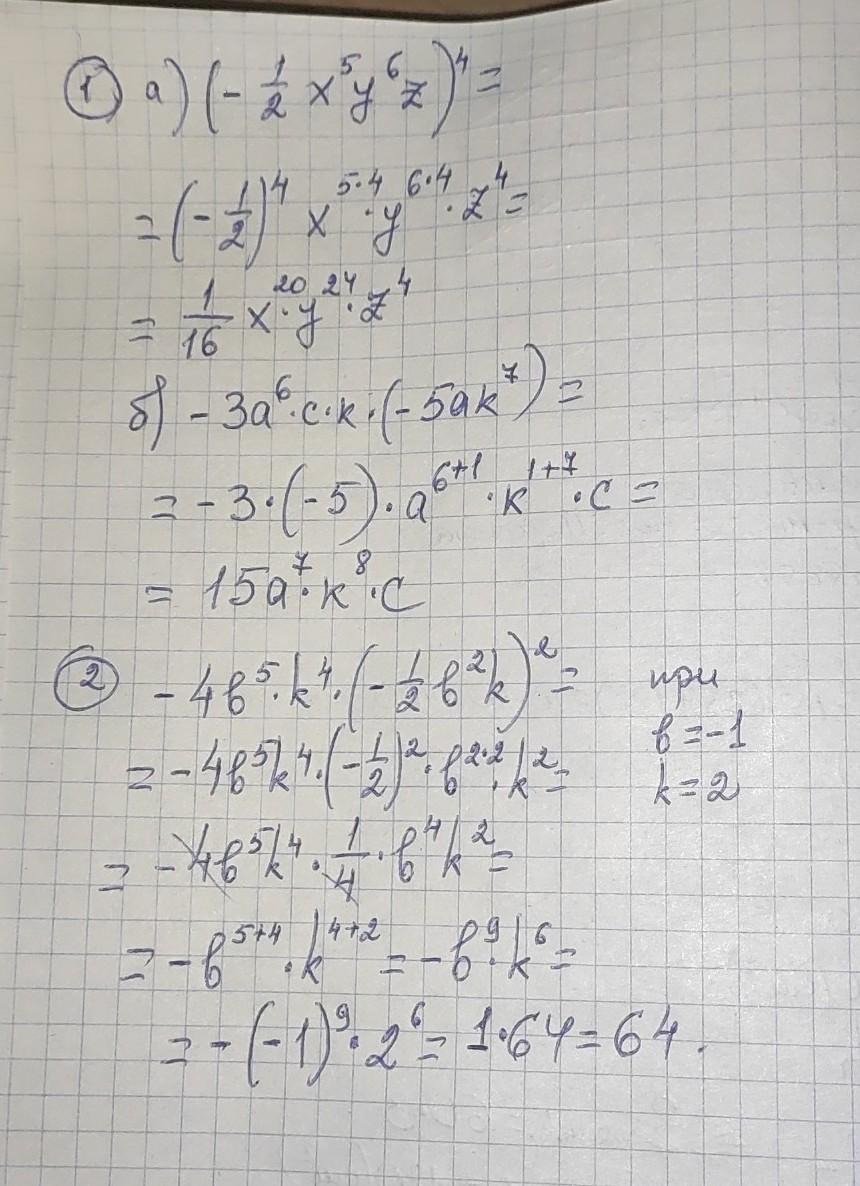 1 а) (- 1/2 x⁵y⁶z)⁴ =
= (- 1/2)⁴ x⁵·⁴ · y⁶·⁴ · z⁴ =
= 1/16 x²⁰ · y²⁴ · z⁴
б) - 3a⁶ · c · k · (- 5ak⁷) =
= - 3 · (- 5) · a⁶⁺¹ · k¹⁺⁷ · c =
= 15a⁷ · k⁸ · c
2 - 4b⁵ · k⁴ · (- 1/2 b²k)² = при
b = -1
= - 4b⁵k⁴ · (- 1/2)² · b²·² · k² =
k = 2
= - 4b⁵k⁴ · 1/4 · b⁴k² =
= - b⁵⁺⁴ · k⁴⁺² = - b⁹ · k⁶ =
= - (-1)⁹ · 2⁶ = 1 · 64 = 64.